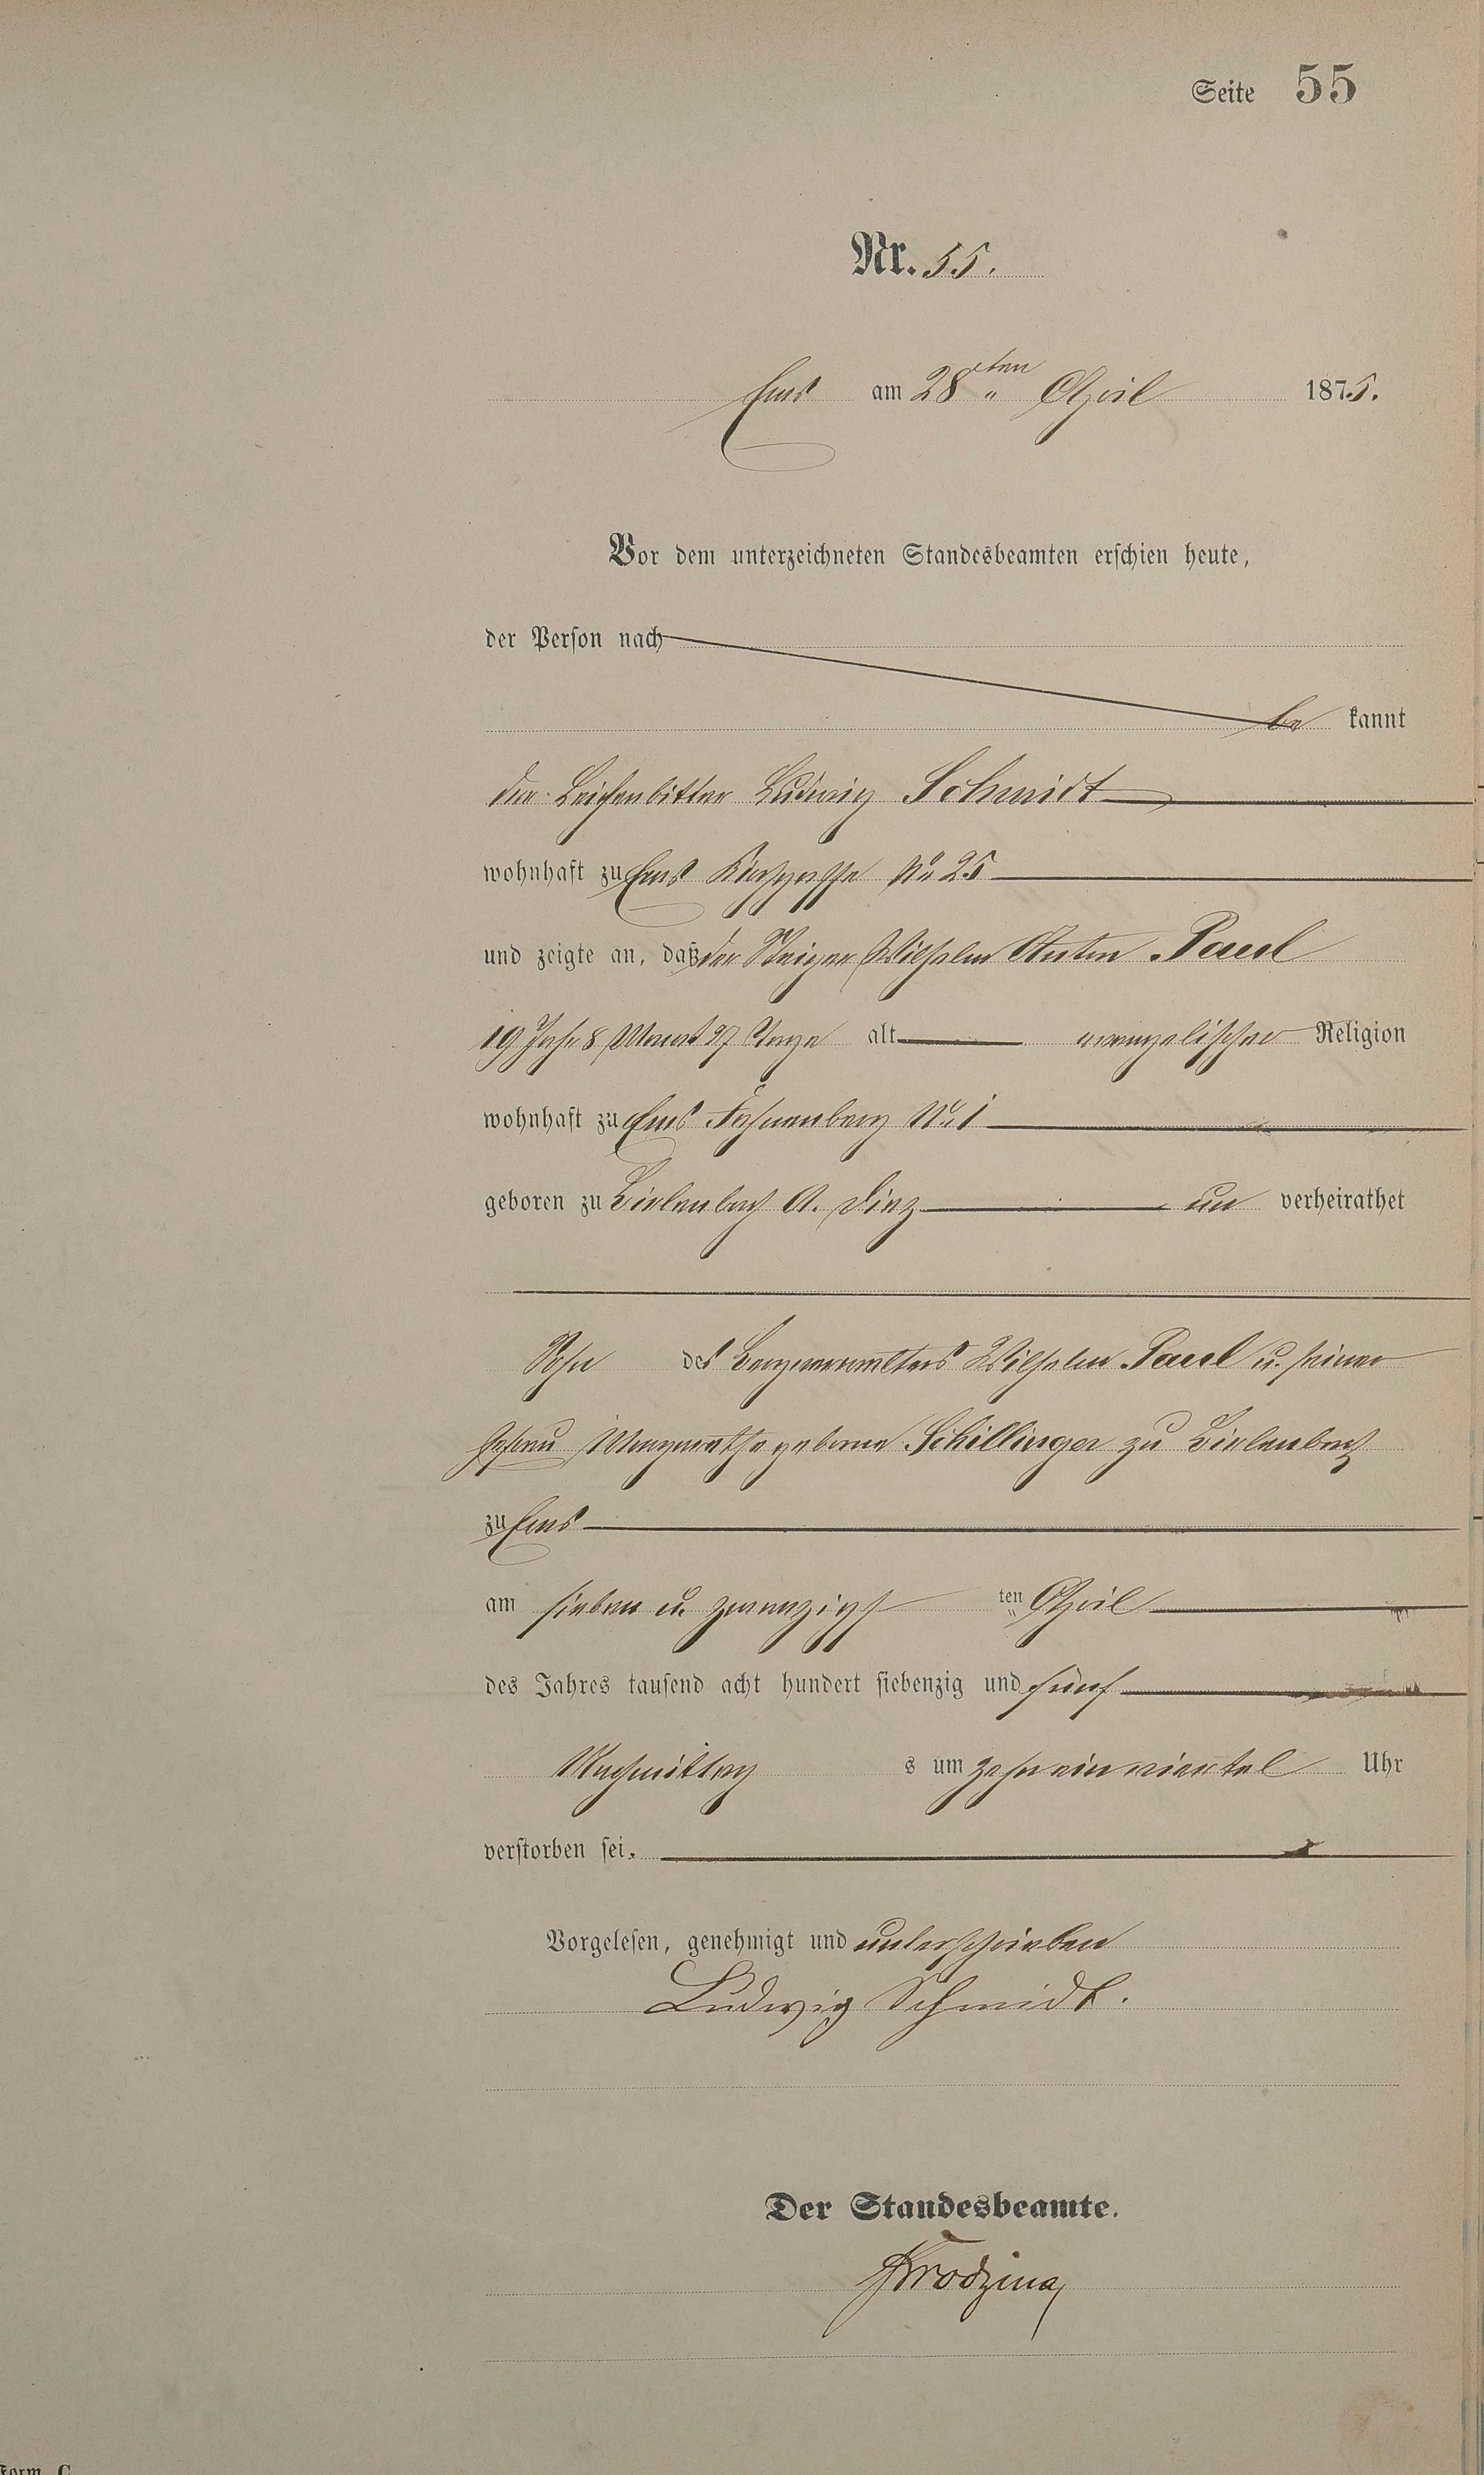 Seite 55
Nr. 55.
Ems am 28sten April 1875.
Vor dem unterzeichneten Standesbeamten erschien heute,
der Person nach
be kannt
der Leichenbitter Ludwig Schmidt
wohnhaft zu Ems Kirchgasse No 25
und zeigte an, daß der Steiger Wilhelm Anton Paul
19 Jahr 8 Monat 27 Tage alt evangelischer Religion
wohnhaft zu Ems No 1
geboren zu A. Diez un verheirathet
Sohn des Bergverwalters Wilhelm Paul u. seiner
Ehefrau Margarethe geborne Schillinger zu
zu Ems
am sieben u. zwanzigst ten April
des Jahres tausend acht hundert siebenzig und fünf
Nachmittag s um zehn ein viertel Uhr
verstorben sei.
Vorgelesen, genehmigt und unterschrieben
Ludwig Schmidt.
Der Standesbeamte.
Form. C